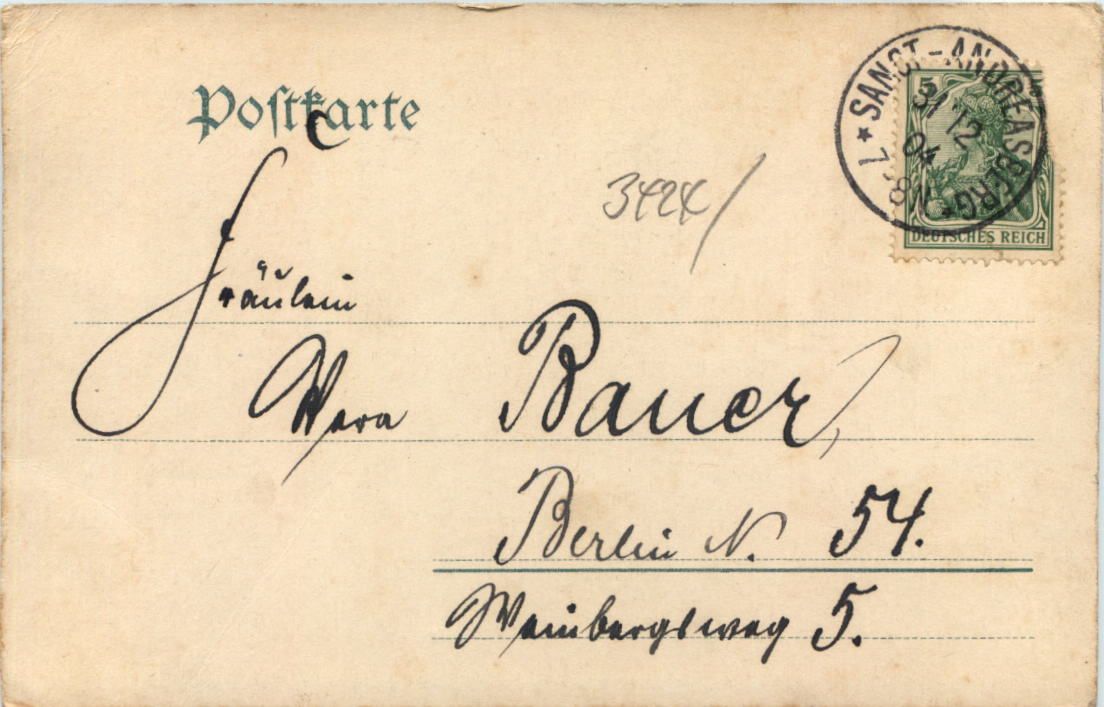 Postkarte
C
* SANCT-ANDREASBERG *
31 12
04
7-8N.
5
DEUTSCHES REICH
3424/
Fräulein
Wera Bauer,
Berlin N. 54.
Weinbergsweg 5.